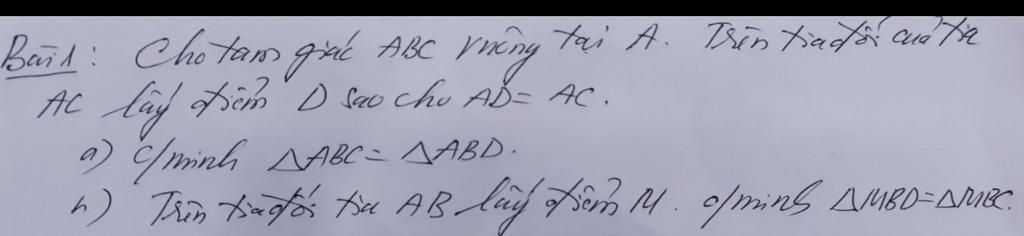 Bài 1: Cho tam giác ABC vuông tại A. Trên tia đối của tia
AC lấy điểm D sao cho AD = AC.
a) C/minh △ABC = △ABD.
b) Trên tia đối tia AB lấy điểm M. c/minh △MBD = △MBC.